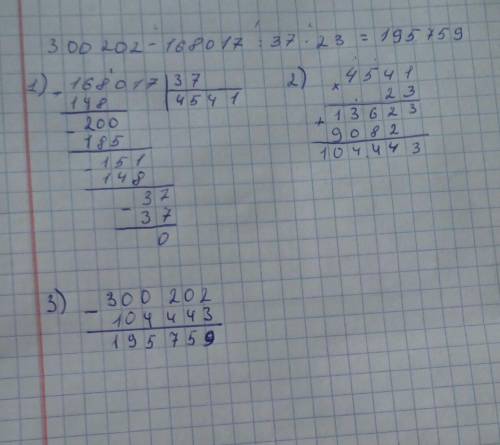 300202 - 168017 : 37 · 23 = 195759
1) - 168017 | 37
148 | 4541
- 200
185
- 151
148
- 37
37
0
2) × 4541
23
+ 13623
9082
104443
3) - 300 202
104 443
195 759